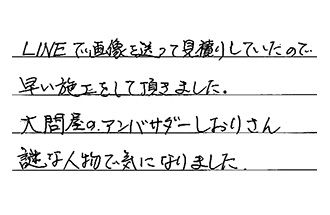 LINEで画像を送って見積りしていたので
早い施工をして頂きました。
大問屋のアンバサダーしおりさん
謎な人物で気になりました